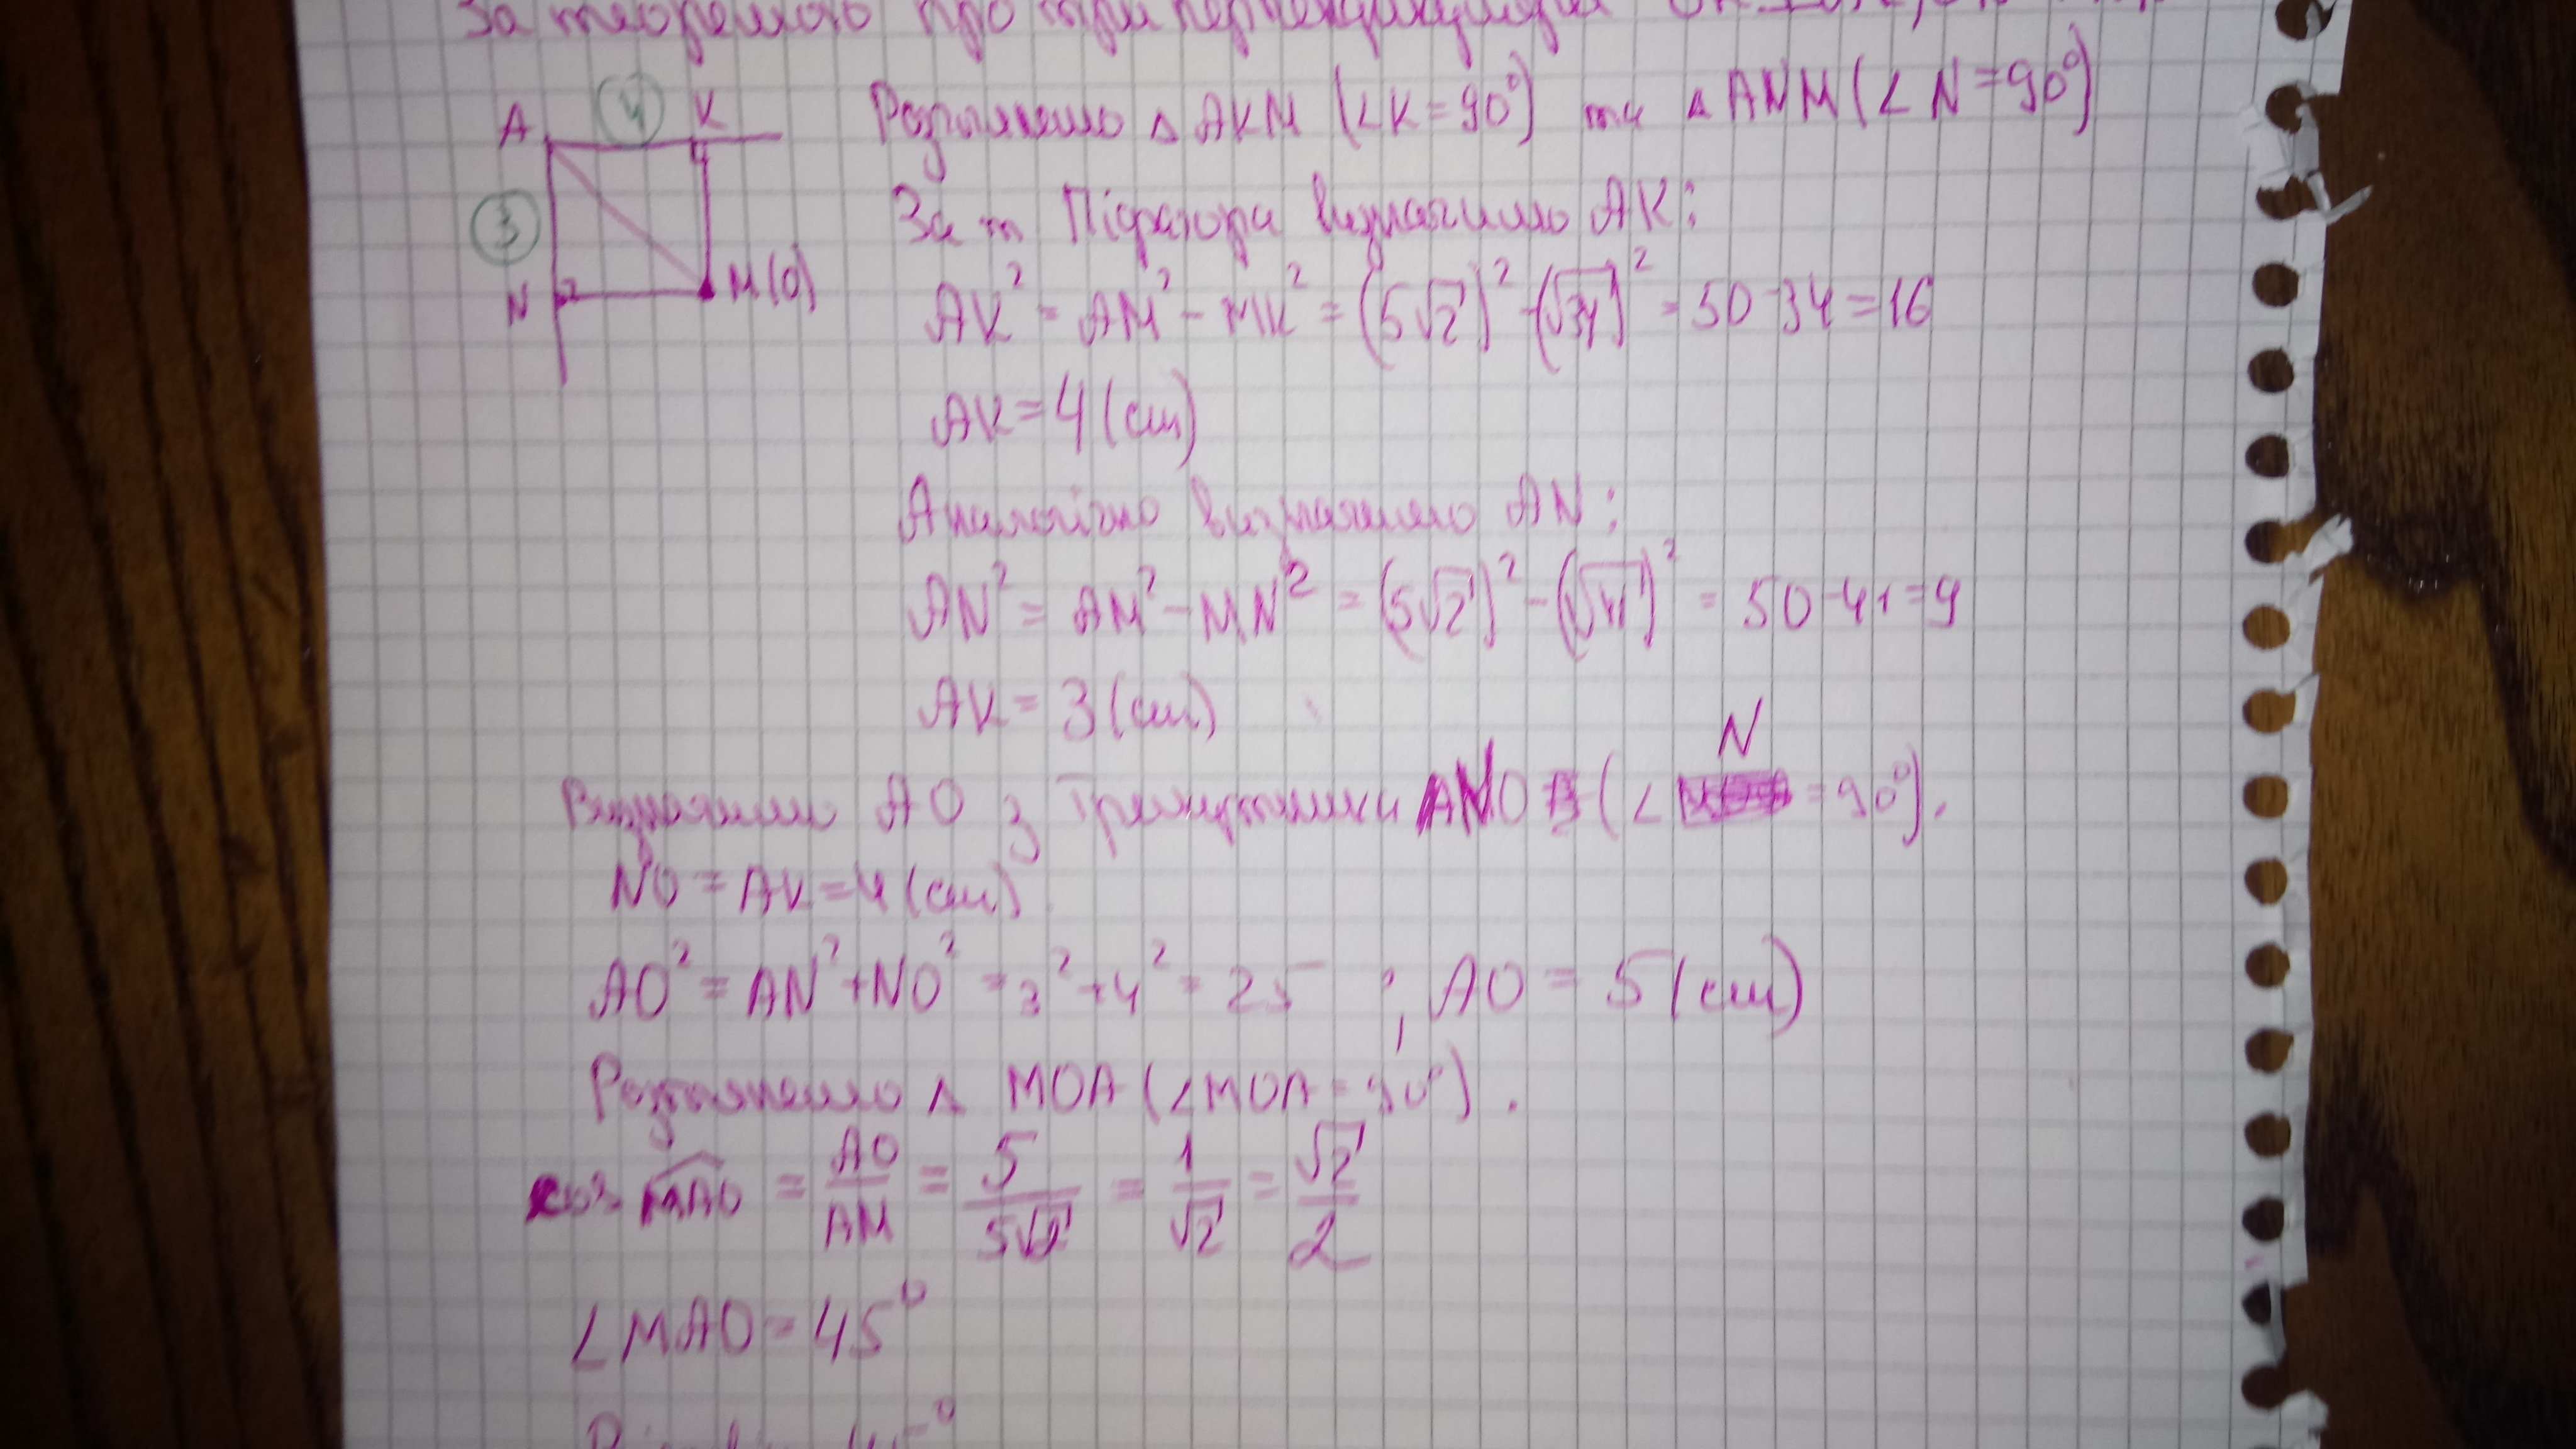 За теоремою про три перпендикуляри
A 4 K
3
N M(O)
Розглянемо △ AKM (∠K=90°) та △ ANM (∠N=90°)
За т Піфагора визначимо AK:
AK² = AM² - MK² = (5√2)² - (√34)² = 50-34=16
AK = 4 (см)
Аналогічно визначаємо AN:
AN² = AM² - MN² = (5√2)² - (√41)² = 50-41=9
AK = 3 (см)
Визначимо AO з Трикутника ANO (∠N = 90°).
NO = AK = 4 (см)
AO² = AN² + NO² = 3² + 4² = 25 ; AO = 5 (см)
Розглянемо △ MOA (∠MOA = 90°).
cos MAO = AO/AM = 5/5√2 = 1/√2 = √2/2
∠MAO = 45°